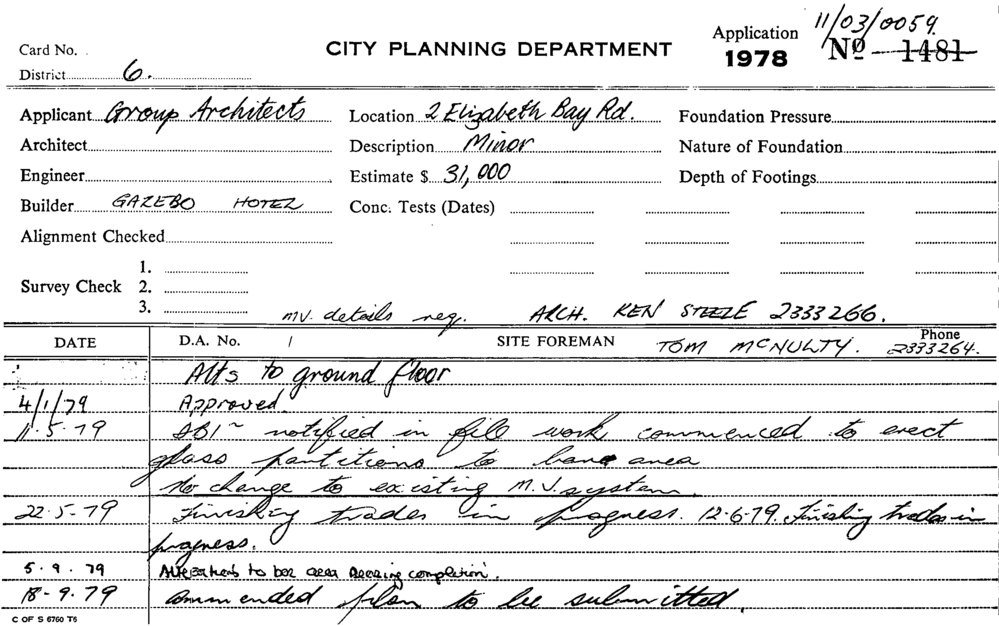 11/03/0059.
Card No. CITY PLANNING DEPARTMENT Application 1978 No 1481
District 6.
Applicant Group Architects Location 2 Elizabeth Bay Rd. Foundation Pressure
Architect Description Minor Nature of Foundation
Engineer Estimate $ 31,000 Depth of Footings
Builder GAZEBO HOTEL Conc. Tests (Dates)
Alignment Checked
1.
Survey Check 2.
3.
MV. details req. ARCH. KEN STEELE 2333266.
DATE D.A. No. / SITE FOREMAN TOM McNULTY. Phone 2333264.
Alts to ground floor
4/1/79 Approved.
11.5.79 notified in file work commenced to erect
glass partitions to area
No change to existing M.V. system.
22.5.79 Finishing trades in progress. 12.6.79. Finishing trades in
progress.
5.9.79 Alterations to bar area nearing completion.
18-9.79 Ammended plan to be submitted.
C OF S 6760 T6